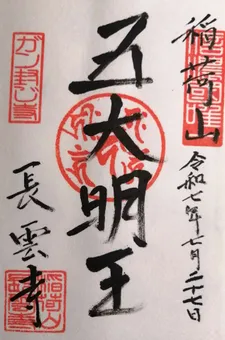 稲荷山
令和七年七月二十七日
五大明王
ガン封じ寺
長雲寺
稲荷山